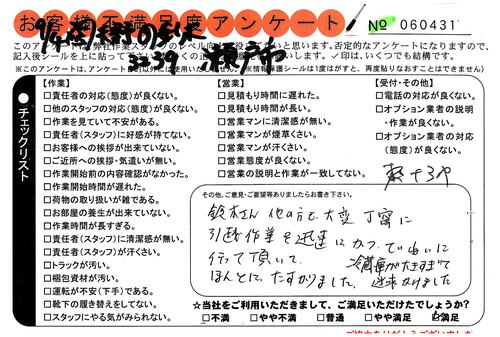 お客様不満足度アンケート
№ 060431
このアンケートは、弊社作業スタッフのレベル向上
と思います。否定的なアンケートになりますので、
記入後シールを上に貼って
✓印は、いくつでも結構です。
※このアンケートは、アンケート
以外には使用いたしません。※情報保護シールは1度はがすと、再度貼りなおすことはできません
チェックリスト
【作業】
□責任者の対応(態度)が良くない。
□他のスタッフの対応(態度)が良くない。
□作業を見ていて不安がある。
□責任者(スタッフ)に好感が持てない。
□お客様への挨拶が出来ていない。
□ご近所への挨拶・気遣いが無い。
□作業開始前の内容確認がなかった。
□作業開始時間が遅れた。
□荷物の取り扱いが雑である。
□お部屋の養生が出来ていない。
□作業時間が長すぎる。
□責任者(スタッフ)に清潔感が無い。
□責任者(スタッフ)が汗くさい。
□トラックが汚い。
□梱包資材が汚い。
□運転が不安(下手)である。
□靴下の履き替えをしてない。
□スタッフにやる気がみられない。
【営業】
□見積もり時間に遅れた。
□見積もり時間が長い。
□営業マンに清潔感が無い。
□営業マンが煙草くさい。
□営業マンが汗くさい。
□営業態度が良くない。
□営業の説明と作業が一致してない。
【受付・その他】
□電話の対応が良くない。
□オプション業者の説明
・作業が良くない。
□オプション業者の対応
(態度)が良くない。
その他、ご意見・ご要望等ありましたらお書き下さい。
鈴木さん 他の方も大変丁寧に
引越作業を迅速にかつ、ていねいに
行って頂いて、
ほんとにたすかりました。
冷蔵庫が大きすぎて
☆当社をご利用いただきまして、ご満足いただけたでしょうか？
□不満 □やや不満 □普通 □やや満足 ☑満足